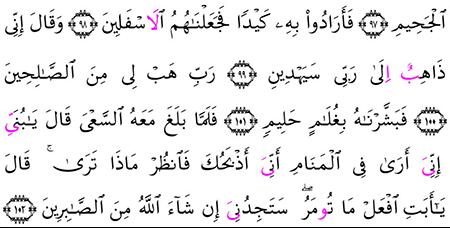 ٱلْجَحِيمِ ﴿٩٧﴾ فَأَرَادُوا۟ بِهِۦ كَيْدًا فَجَعَلْنَٰهُمُ ٱلَاسْفَلِينَ ﴿٩٨﴾ وَقَالَ إِنِّى
ذَاهِبٌ اِلَىٰ رَبِّى سَيَهْدِينِ ﴿٩٩﴾ رَبِّ هَبْ لِى مِنَ ٱلصَّٰلِحِينَ
﴿١٠٠﴾ فَبَشَّرْنَٰهُ بِغُلَٰمٍ حَلِيمٍ ﴿١٠١﴾ فَلَمَّا بَلَغَ مَعَهُ ٱلسَّعْىَ قَالَ يَٰبُنَىِّ
إِنِّىَ أَرَىٰ فِى ٱلْمَنَامِ أَنِّىَ أَذْبَحُكَ فَٱنظُرْ مَاذَا تَرَىٰ ۚ قَالَ
يَٰٓأَبَتِ ٱفْعَلْ مَا تُومَرُ ۖ سَتَجِدُنِىَ إِن شَآءَ ٱللَّهُ مِنَ ٱلصَّٰبِرِينَ ﴿١٠٢﴾